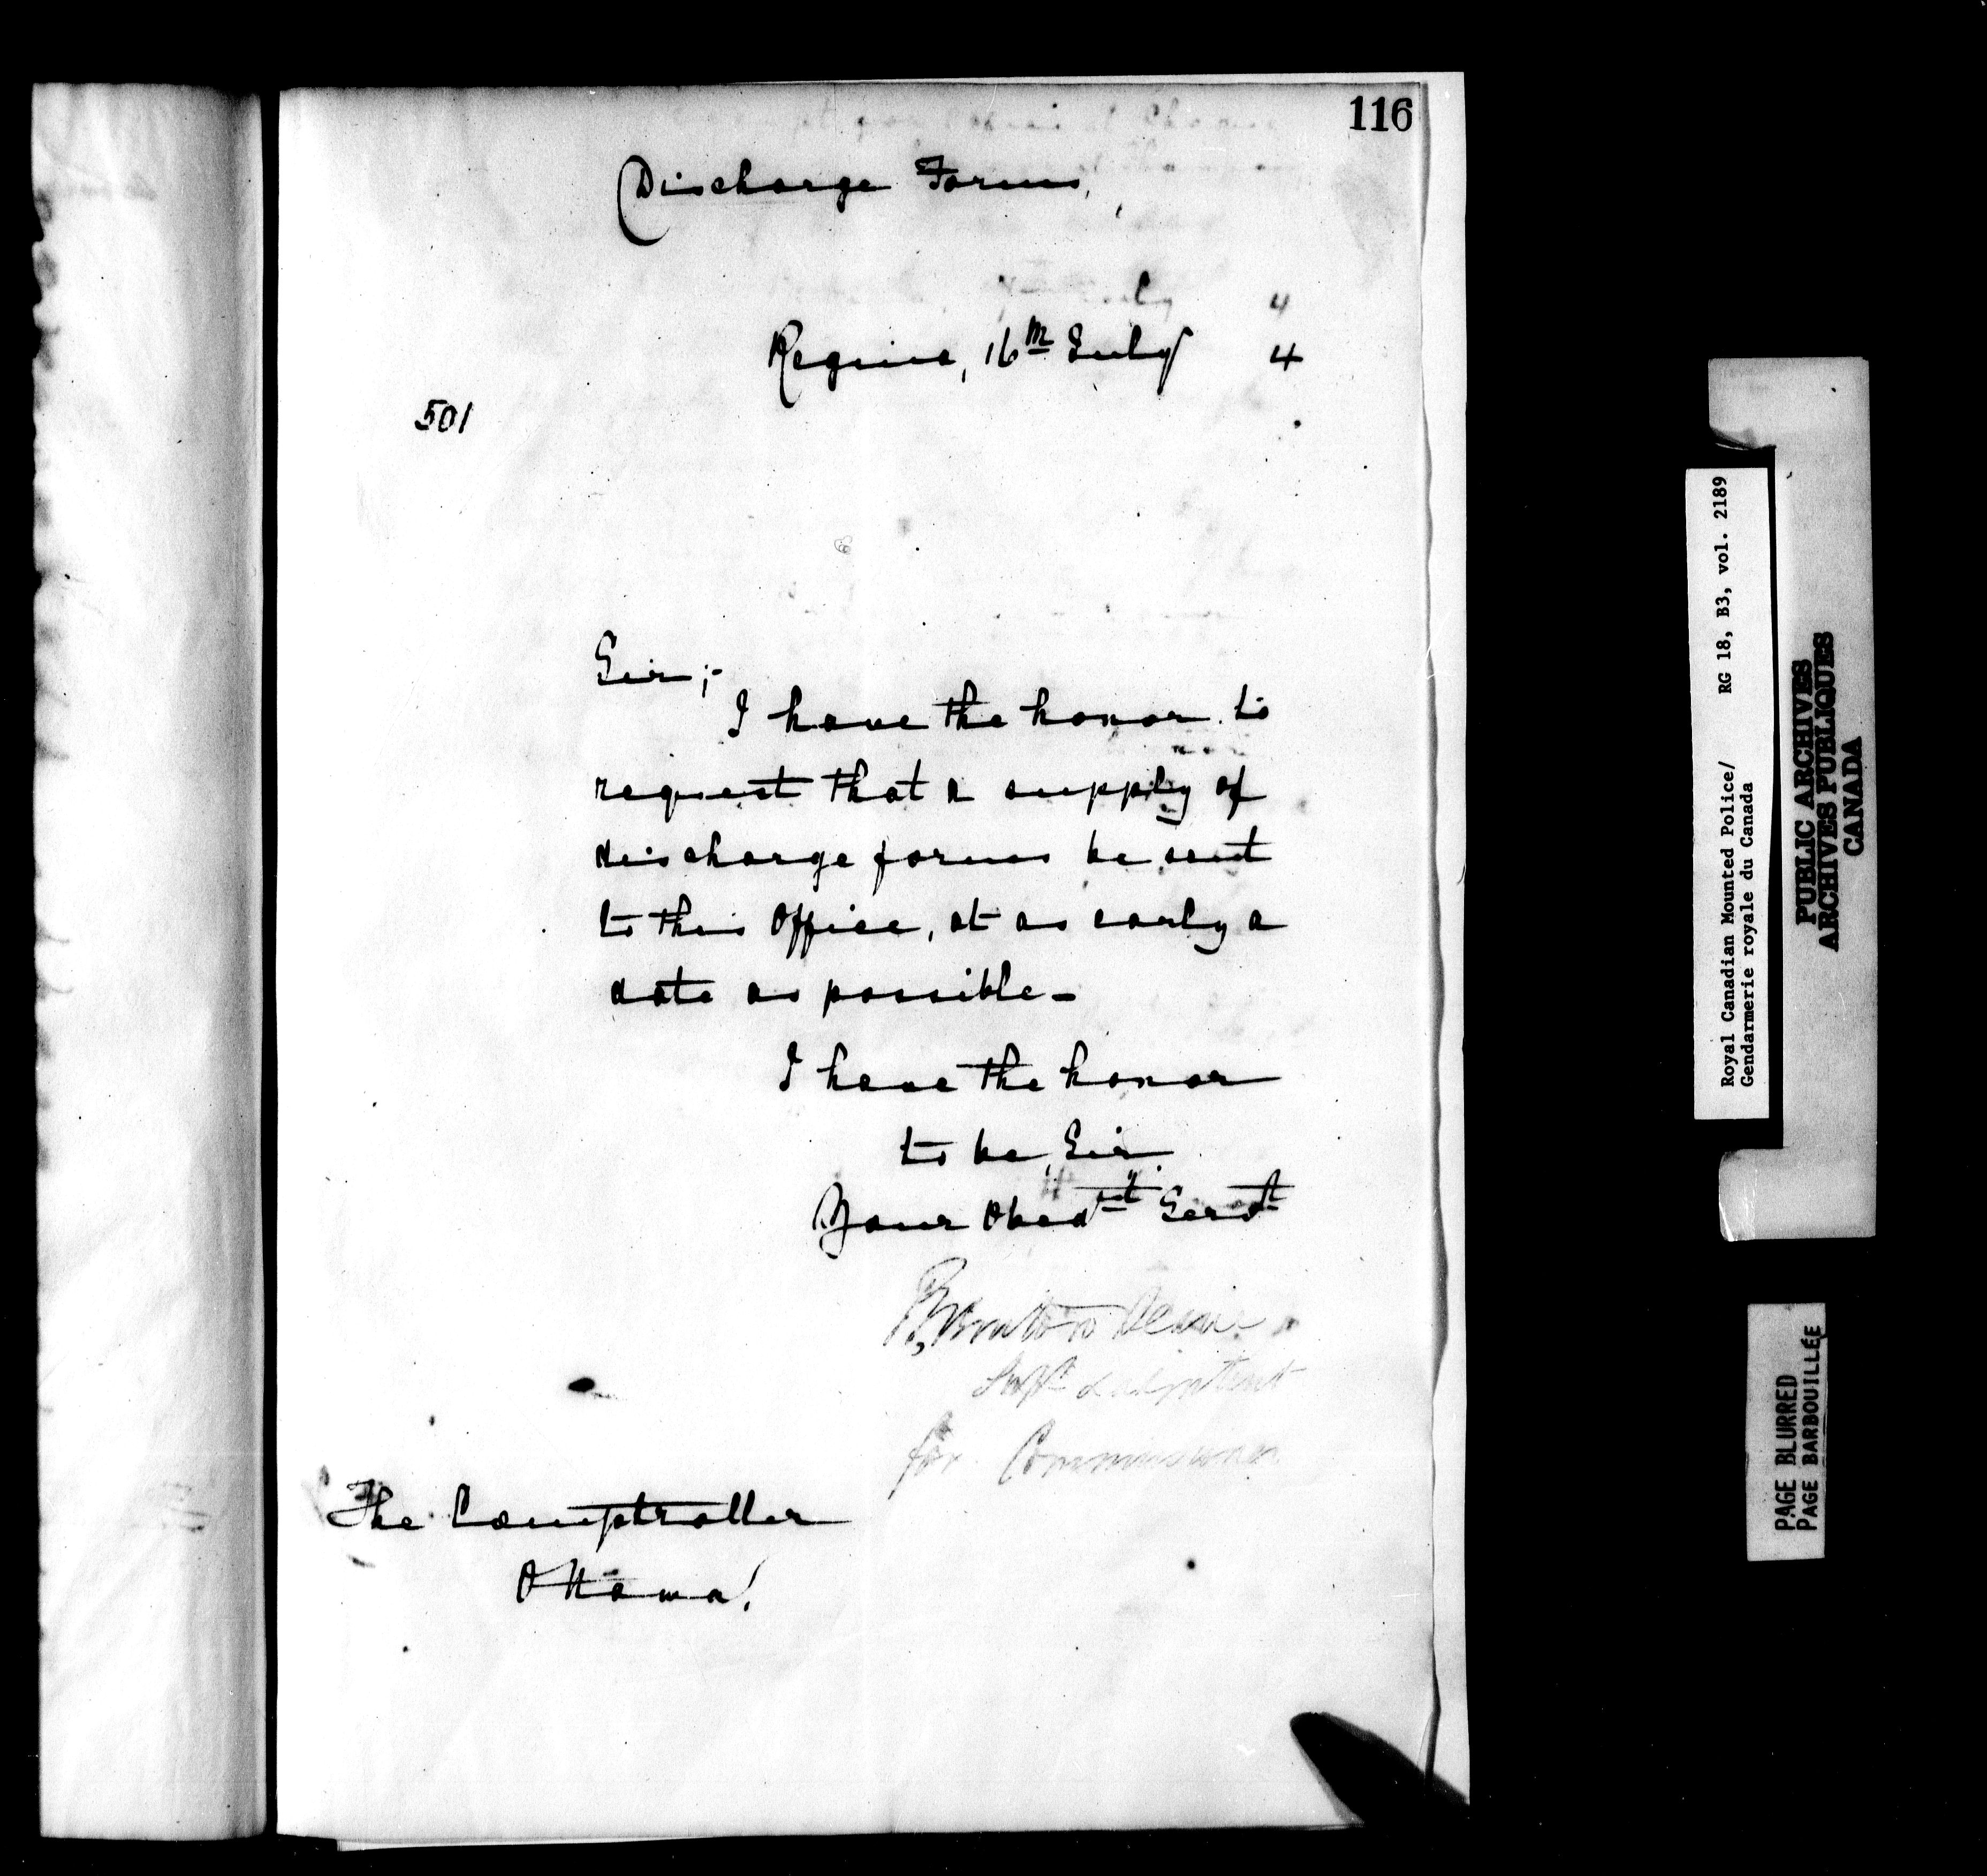 116
Discharge Forms,
4
Regina, 16th July 4
501
Sir;-
I have the honor to
request that a supply of
discharge forms be sent
to this Office, at as early a
date as possible-
I have the honor
to be, Sir
Your Obednt Servt
R. Burton Deane
Supt & Adjutant
for Commissioner
The Comptroller
Ottawa.
Royal Canadian Mounted Police/ RG 18, B3, vol. 2189
Gendarmerie royale du Canada
PUBLIC ARCHIVES
ARCHIVES PUBLIQUES
CANADA
PAGE BLURRED
PAGE BARBOUILLÉE